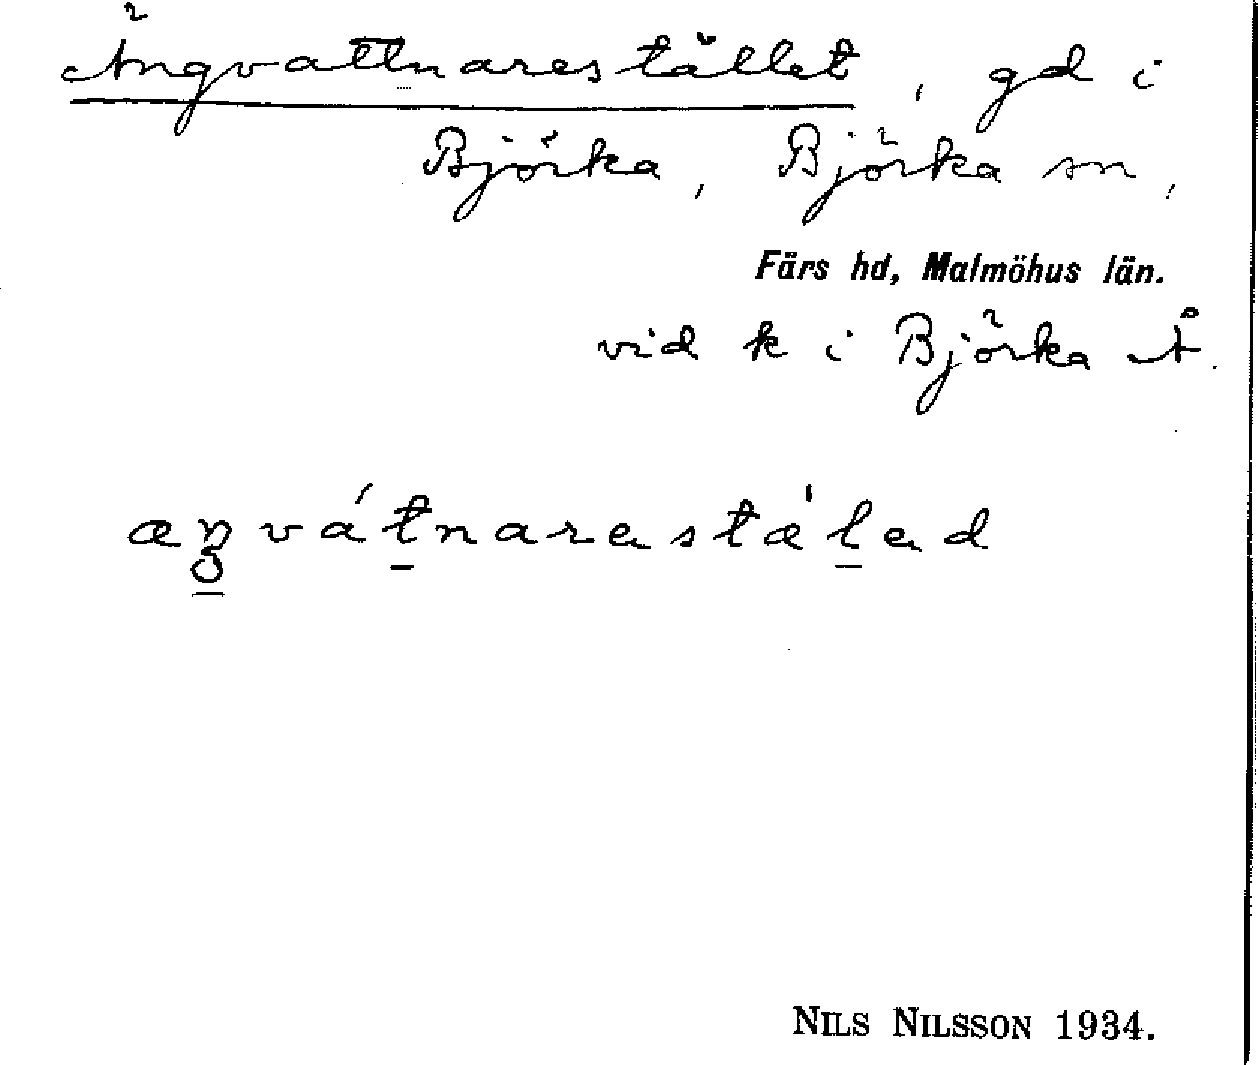 Ängvattnarestället, gd i
Björka, Björka sn,
Färs hd, Malmöhus län.
vid k i Björka Å.
æŋvátnarastæ̍lad
NILS NILSSON 1934.